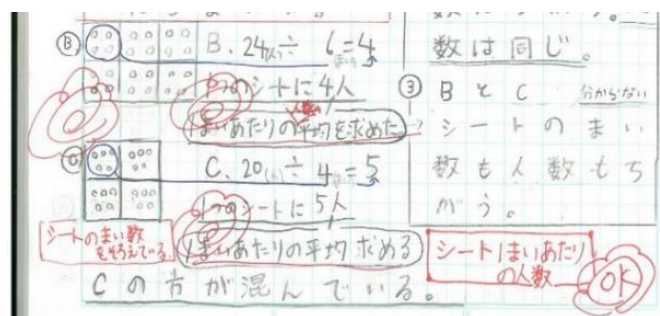 Ⓑ B、24(人)÷6=4
(まい)
1つのシートに4人
人数
1まいあたりの平均を求めた→
Ⓒ C、20(人)÷4=5
1つのシートに5人
シートのまい数
をそろえている。
1まいあたりの平均求める
Cの方が混んでいる。
数は同じ。
③ BとC 分からない
シートのまい
数も人数もち
がう。
シート1まいあたり
の人数
OK